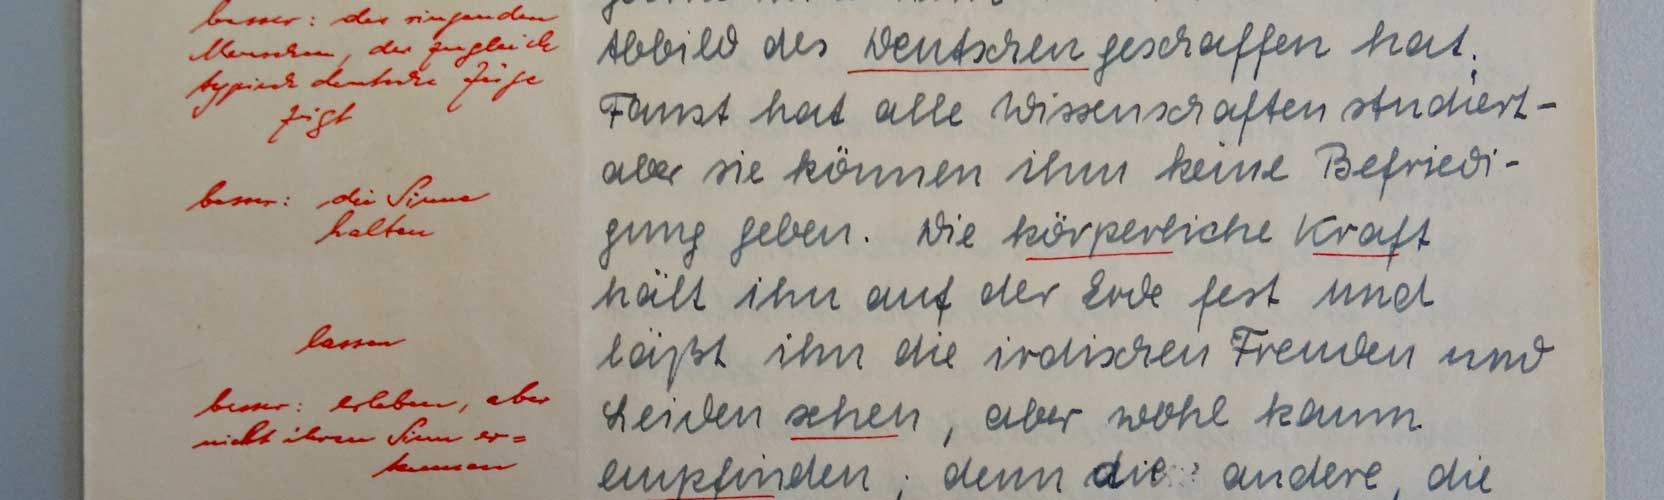 besser: des ringenden
Menschen, der zugleich
typisch deutsche Züge
zeigt
besser: die Sinne
halten
lassen
besser: erleben, aber
nicht ihren Sinn er=
kennen
Abbild des Deutschen geschaffen hat.
Faust hat alle Wissenschaften studiert-
aber sie können ihm keine Befriedi-
gung geben. Die körperliche Kraft
hält ihn auf der Erde fest und
läßt ihn die irdischen Freuden und
Leiden sehen, aber wohl kaum
empfinden; denn die andere, die